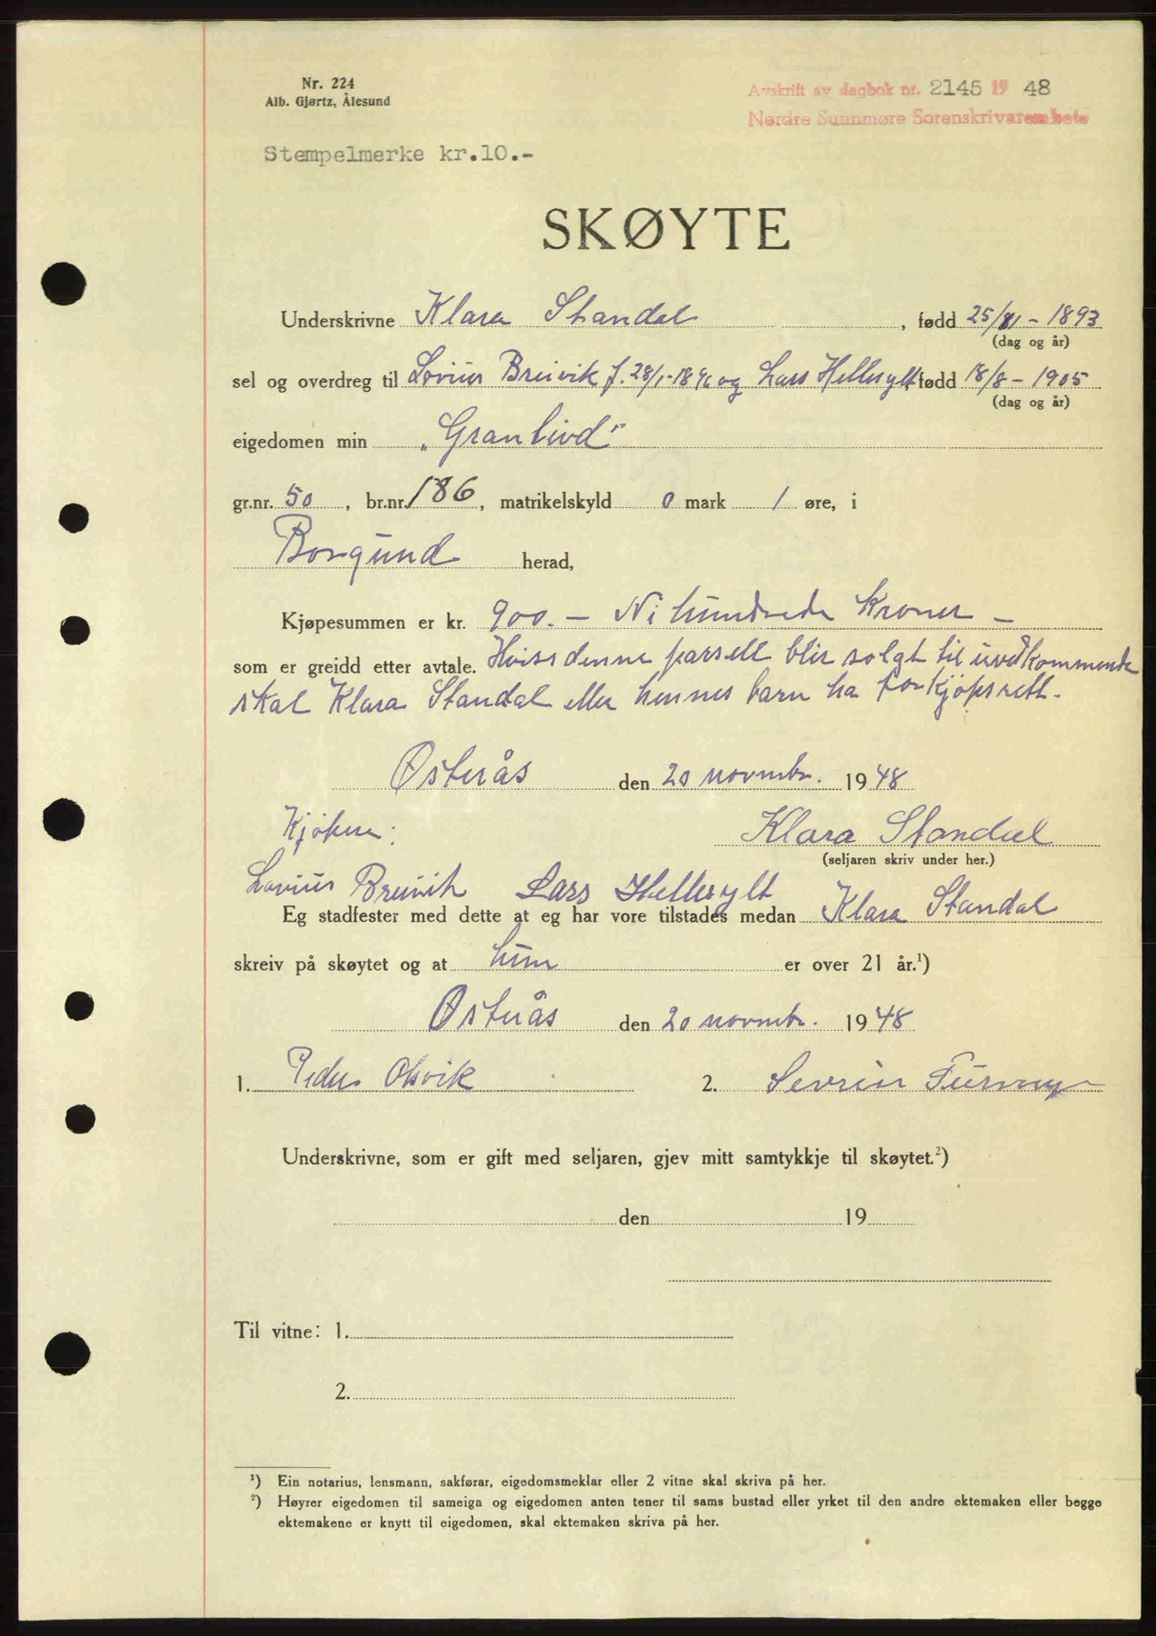 Nr. 224
Alb. Gjørtz, Ålesund
Avskrift av dagbok nr. 2145 19 48
Nordre Sunnmøre Sorenskrivarembete
Stempelmerke kr.10.-
SKØYTE
Underskrivne Klara Standal , fødd 25/11 - 1893
(dag og år)
sel og overdreg til Lovius Breivik f. 28/1-1896 og Lars Hellesylt fødd 18/8 - 1905
(dag og år)
eigedomen min „Granlund"
gr.nr. 50 , br.nr. 186 , matrikelskyld 0 mark 1 øre, i
Borgund herad,
Kjøpesummen er kr. 900.- Ni hundrede kroner -
som er greidd etter avtale. Hviss denne parsell blir solgt til uvedkommende
skal Klara Standal eller hennes barn ha forkjøpsrett.
Østerås den 20 novembr. 1948
Kjøpere: Klara Standal
(seljaren skriv under her.)
Lovius Breivik Lars Hellesylt
Eg stadfester med dette at eg har vore tilstades medan Klara Standal
skreiv på skøytet og at hun er over 21 år.¹)
Østerås den 20 novembr. 1948
1. Peder Olsvik 2. Sevrin
Underskrivne, som er gift med seljaren, gjev mitt samtykkje til skøytet.²)
den 19
Til vitne: 1.
2.
¹) Ein notarius, lensmann, sakførar, eigedomsmeklar eller 2 vitne skal skriva på her.
²) Høyrer eigedomen til sameiga og eigedomen anten tener til sams bustad eller yrket til den andre ektemaken eller begge
ektemakene er knytt til eigedomen, skal ektemaken skriva på her.